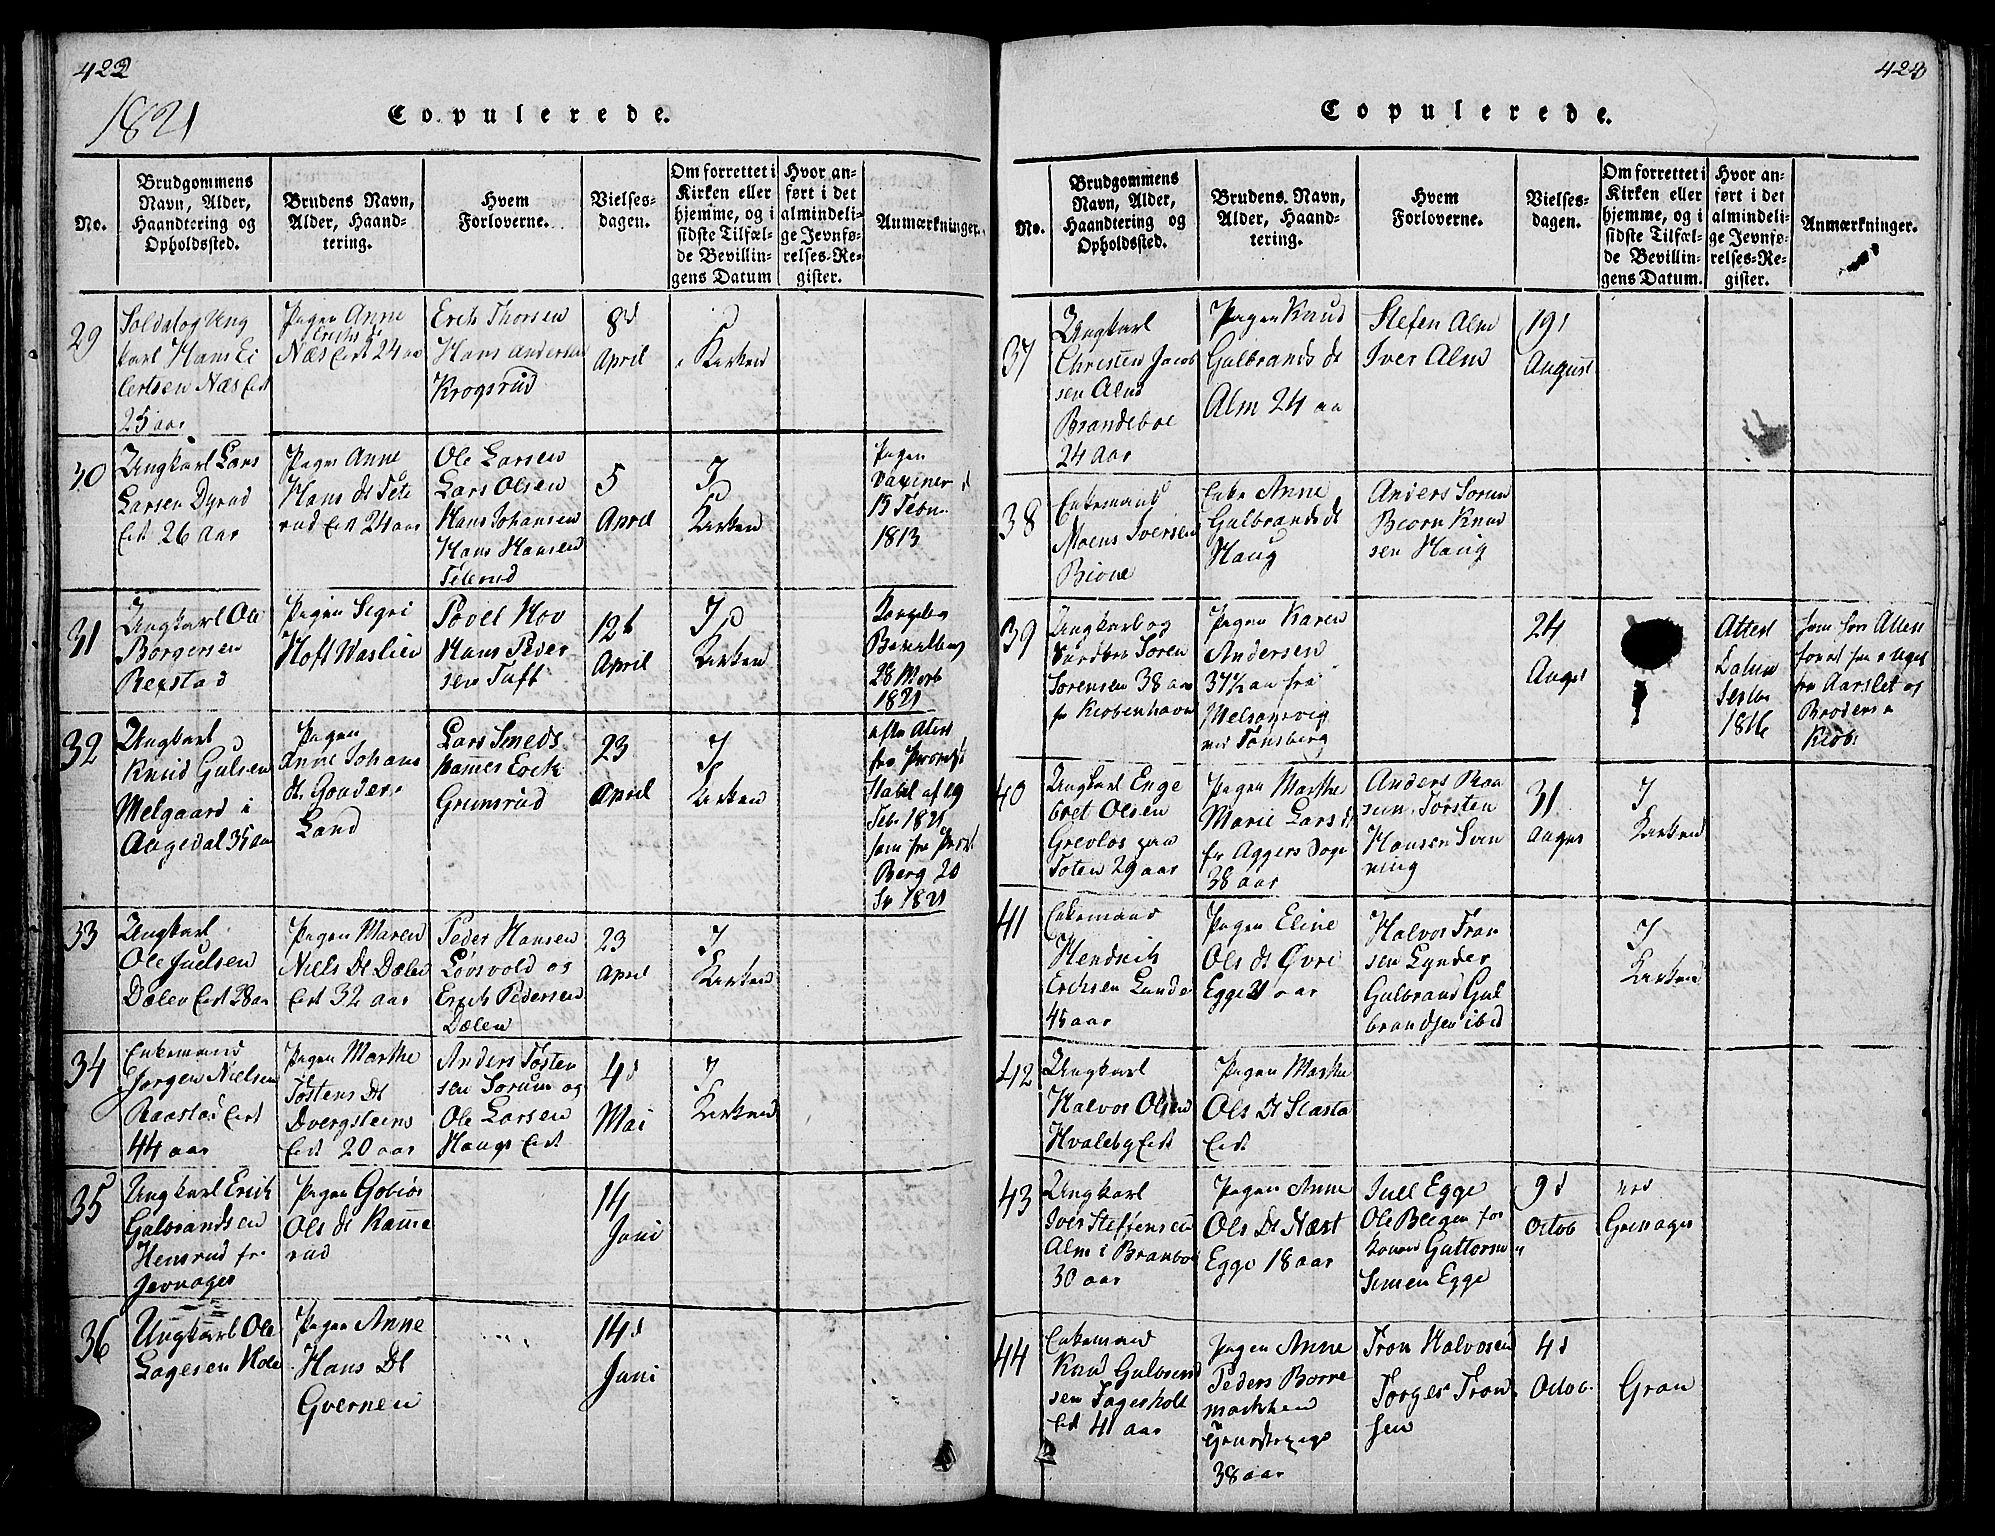 422
1821
Copulerede.
No.
Brudgommens
Navn, Alder,
Haandtering og
Opholdssted.
Brudens Navn,
Alder, Haand-
tering.
Hvem
Forloverne.
Vielses-
dagen.
Om forrettet i
Kirken eller
hjemme, og i
sidste Tilfæl-
de Bevillin-
gens Datum
Hvor an-
ført i det
almindeli-
ge Jevnfø-
relses-Re-
gister.
Anmærkninger.
29
Soldat og Ung
karl Hans Ei
lertsen Næs Eiet
25 aar
Pigen Anne
Erichs dt
Næs Eiet 24 aa
Erich Thorsen
Hans Andersen
Krogsrud
8d
April
Kirken
30
Ungkarl Lars
Larsen Dyrud
Eiet 26 aar
Pigen Anne
Hans dt Tete
rud Eiet 24 aar
Ole Larsen
Lars Olsen
Hans Johansen
Hans Hansen
Teterud
5
April
I
Kirken
Pigen
Vaxiner
13 Febr.
1813
31
Ungkarl Ole
Borgersen
Rexstad
Pigen Sigri
Hoft Waslien
Povel Hov
Hans Peder
sen Tuft
12t
April
I
Kirken
Kongelig
Bevilling
28 Marts
1821
32
Ungkarl
Knud Gulsen
Melgaard i
Aagedal 35 aar
Pigen
Anne Johans
dt. Gonder
Land
Lars Smeds
hamer Erik
Grimsrud
23
April
I
Kirken
efter Attest
fra Provst
Stabel af 29
Febr. 1821
som fra Prost
Berg 20
1821
33
Ungkarl
Ole Juelsen
Dælen Eiet 28 aar
Pigen Maren
Niels Dt Dælen
Eiet 32 aar
Peder Hansen
Lovsvold og
Erich Pedersen
Dælen
23
April
I
Kirken
34
Enkemand
Jørgen Nielsen
Raastad Eiet
44 aar
Pigen Marthe
Tostens Dt
Dvergsteins
Eiet 20 aar
Anders Tosten
sen Sorum og
Ole Larsen
Haugs Eiet
4d
Mai
I
Kirken
35
Ungkarl Erich
Gulbrandsen
Hensrud fra
Jevnager
Pigen Gobiør
Ols dt Rame
rud
14
Juni
36
Ungkarl Ole
Lagesen Hole
Pigen Anne
Hans Dt
Gvernen
14d
Juni
423
Copulerede.
No.
Brudgommens
Navn, Alder,
Haandtering og
Opholdssted.
Brudens Navn,
Alder, Haand-
tering.
Hvem
Forloverne.
Vielses-
dagen.
Om forrettet i
Kirken eller
hjemme, og i
sidste Tilfæl-
de Bevillin-
gens Datum.
Hvor an-
ført i det
almindeli-
ge Jevnfø-
relses-Re-
gister.
Anmærkninger.
37
Ungkarl
Christen Jacob
sen Alm
Brandeboe
24 Aar
Pigen Knud
Gulbrands dt
Alm 24 aa
Stefen Alm
Iver Alm
19
August
38
Enkemand
Moens Iversen
Bione
Enke Anne
Gulbrands dt
Haug
Anders Sorum
Biorn Knud
sen Haug
39
Ungkarl og
Soren
Sorensen 38 aar
fr Kiobenhavn
Pigen Karen
Andersen
37½ aa fra
Melsomvig
ved Tønsberg
24
Augst
Attest
Datum
1816
som for Attest
fra Aarslet og
Broderen
Kiob.
40
Ungkarl Enge
bret Olsen
Grevlos paa
Toten 29 aar
Pigen Marthe
Marie Lars dt
fr Aggers Sogn
38 aar
Anders Raa
sum Torsten
Hansen Sven
ning
31
Augus
I
Kirken
41
Enkemand
Hendrich
Erichsen Lunde
45 aar
Pigen Eline
Ols dt Øvre
Egge 21 aar
Halvor Tron
sen Lynder
Gulbrand Gul
brandsen ibid
I
Kirken
42
Ungkarl
Halvor Olsen
Hvaleby Eiet
Pigen Marthe
Ols Dt Slasta
Eiet
43
Ungkarl
Iver Steffensen
Alm i Branboe
30 aar
Pigen Anne
Ols Dt Næst
Egge 18 aar
Juel Egge
Ole Blegen for
Guttorm
Simen Egge
9d
Octob
ved
Grenager
44
Enkemand
Knud Gulbrand
sen Fagerholt
Eiet 41 aar
Pigen Anne
Peders Borre
marken
38 aar
Tron Halvorsen
Torger Tron
sen
4d
Octob.
Gran